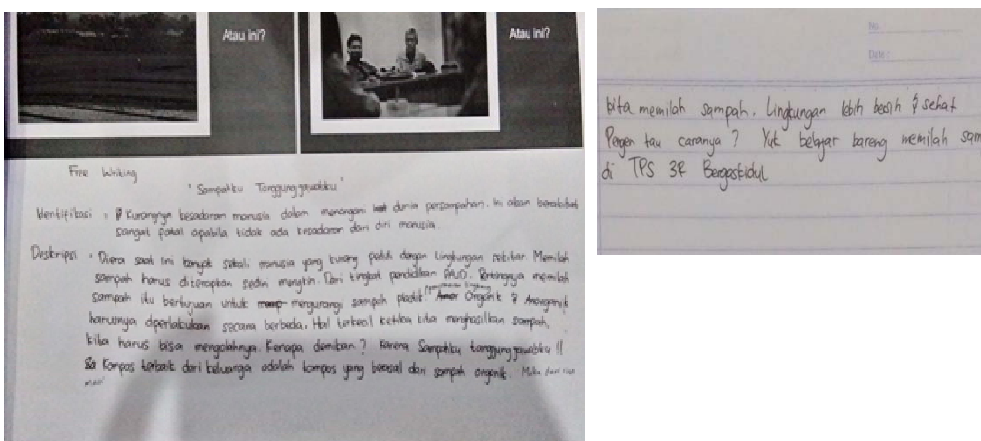 Atau ini?
Atau ini?
Free Writing
"Sampahku Tanggungjawabku"
Identifikasi : Kurangnya kesadaran manusia dalam menangani dunia persampahan. Ini akan berakibat
sangat fatal apabila tidak ada kesadaran dari diri manusia.
Deskripsi : Diera saat ini banyak sekali manusia yang kurang peduli dengan lingkungan sekitar. Memilah
sampah harus diterapkan sedini mungkin. Dari tingkat pendidikan PAUD. Pentingnya memilah
sampah itu bertujuan untuk mengurangi sampah plastik. Organik & Anorganik
harusnya diperlakukan secara berbeda. Hal terkecil ketika kita menghasilkan sampah,
kita harus bisa mengolahnya. Kenapa demikian? Karena Sampahku tanggungjawabku !!
Kompos terbaik dari keluarga adalah kompos yang berasal dari sampah organik. Maka dari
No
Date:
kita memilah sampah. Lingkungan lebih bersih & sehat
Pengen tau caranya? Yuk belajar bareng memilah sam
di TPS 3R Bergaskidul